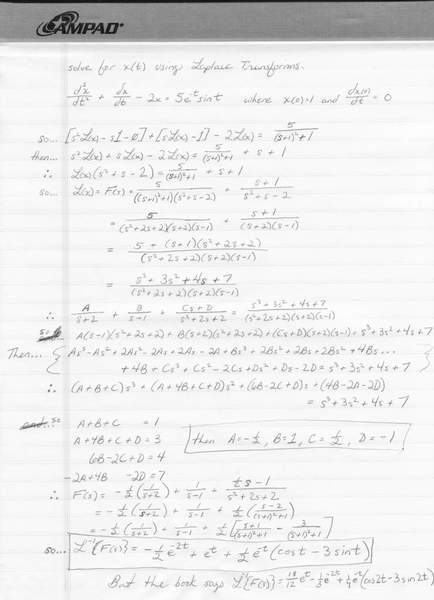 AMPAD
solve for x(t) using Laplace Transforms.
d²x/dt² + dx/dt - 2x = 5e^-t sint where x(0)=1 and dx(0)/dt = 0
so... [s²L(x) - s1 - 0] + [sL(x) - 1] - 2L(x) = 5/((s+1)²+1)
then... s²L(x) + sL(x) - 2L(x) = 5/((s+1)²+1) + s + 1
∴ L(x)(s² + s - 2) = 5/((s+1)²+1) + s + 1
so... L(x) = F(s) = 5/(((s+1)²+1)(s²+s-2)) + (s+1)/(s²+s-2)
= 5/((s²+2s+2)(s+2)(s-1)) + (s+1)/((s+2)(s-1))
= (5 + (s+1)(s²+2s+2))/((s²+2s+2)(s+2)(s-1))
= (s³+3s²+4s+7)/((s²+2s+2)(s+2)(s-1))
∴ A/(s+2) + B/(s-1) + (Cs+D)/(s²+2s+2) = (s³+3s²+4s+7)/((s²+2s+2)(s+2)(s-1))
A(s-1)(s²+2s+2) + B(s+2)(s²+2s+2) + (Cs+D)(s+2)(s-1) = s³+3s²+4s+7
Then.... { As³-As²+2As²-2As+2As-2A+Bs³+2Bs²+2Bs+2Bs²+4Bs...
+4B+Cs³+Cs²-2Cs+Ds²+Ds-2D = s³+3s²+4s+7 }
∴ (A+B+C)s³ + (A+4B+C+D)s² + (6B-2C+D)s + (4B-2A-2D)
= s³+3s²+4s+7
so A+B+C = 1
A+4B+C+D = 3
then A=-½, B=1, C=½, D=-1
6B-2C+D = 4
-2A+4B -2D = 7
∴ F(s) = -½(1/(s+2)) + 1/(s-1) + (½s-1)/(s²+2s+2)
= -½(1/(s+2)) + 1/(s-1) + ½((s-2)/((s+1)²+1))
= -½(1/(s+2)) + 1/(s-1) + ½[(s+1)/((s+1)²+1) - 3/((s+1)²+1)]
so... L^-1{F(s)} = -½e^-2t + e^t + ½e^-t(cost - 3sint)
But the book says L^-1{F(s)} =